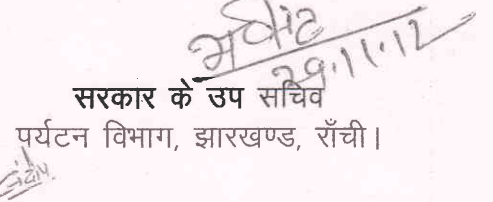 29.11.12
सरकार के उप सचिव
पर्यटन विभाग, झारखण्ड, राँची।